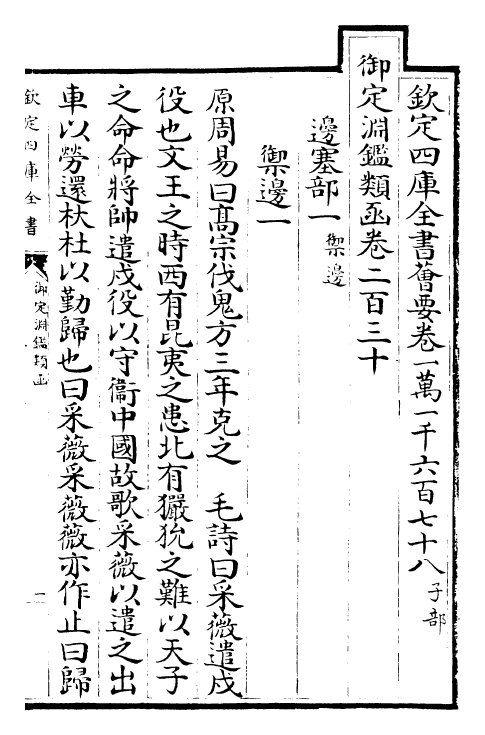 欽定四庫全書薈要卷一萬一千六百七十八 子部
御定淵鑑類函卷二百三十
邊塞部一 禦邊
禦邊一
原周易曰髙宗伐鬼方三年克之 毛詩曰采薇遣戍
役也文王之時西有昆夷之患北有玁狁之難以天子
之命命將帥遣戍役以守衞中國故歌采薇以遣之出
車以勞還杕杜以勤歸也曰采薇采薇薇亦作止曰歸
欽定四庫全書
御定淵鑑類函
一